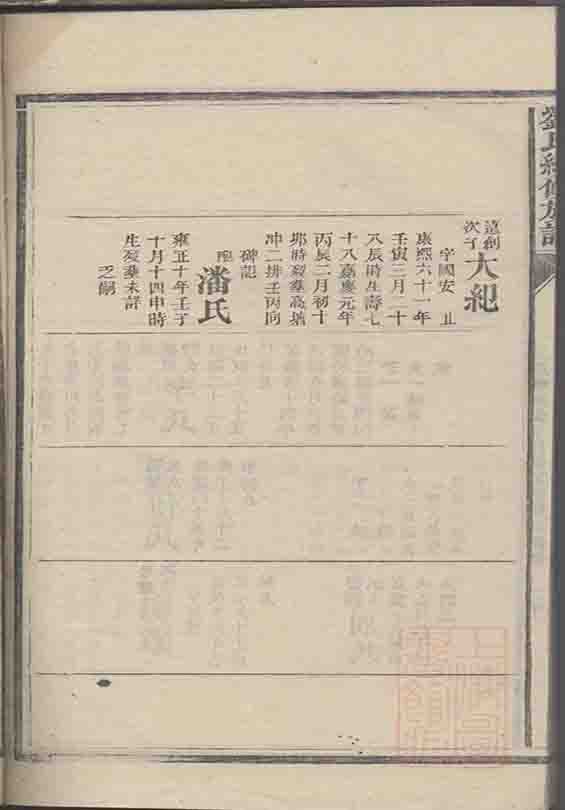 劉氏續修族譜
遠創
次子 大紀
字國安
康熙六十一年
壬寅二月二十
八辰時生壽七
十八嘉慶元年
丙辰二月初十
時歿葬高塘
冲二排壬丙向
碑記
配 潘氏
雍正十年壬子
十月十四申時
生歿葬未詳
之嗣